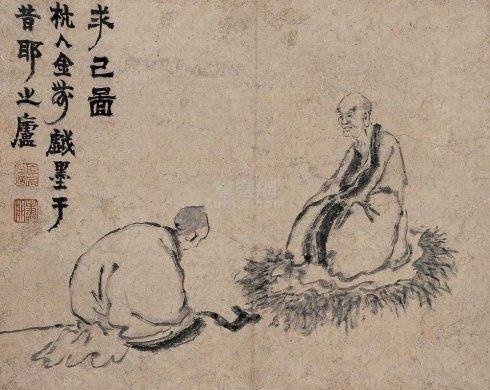 求己啚
杭人金農戲墨于
昔耶之廬